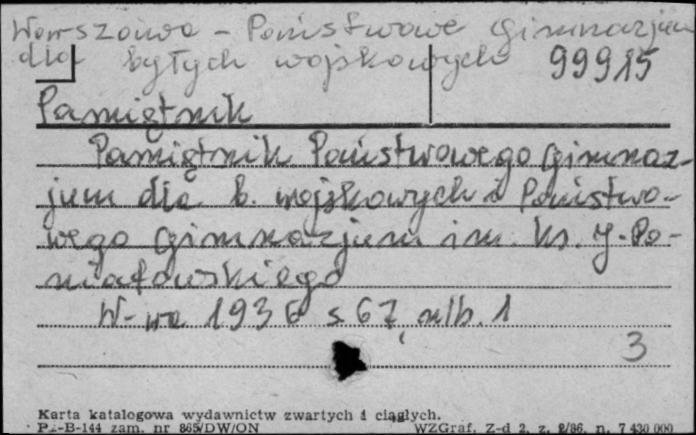 Warszawa - Państwowe Gimnazjum
dla byłych wojskowych 99915
Pamiętnik
Pamiętnik Państwowego Gimnaz-
jum dla b. wojskowych i Państwo-
wego Gimnazjum im. ks. J. Po-
niatowskiego
W-wa 1936 s. 67, nlb. 1
3
Karta katalogowa wydawnictw zwartych i ciągłych.
Pu-B-144 zam. nr 865/DW/ON WZGraf. Z-d 2. z. 2/86. n. 7 430 000